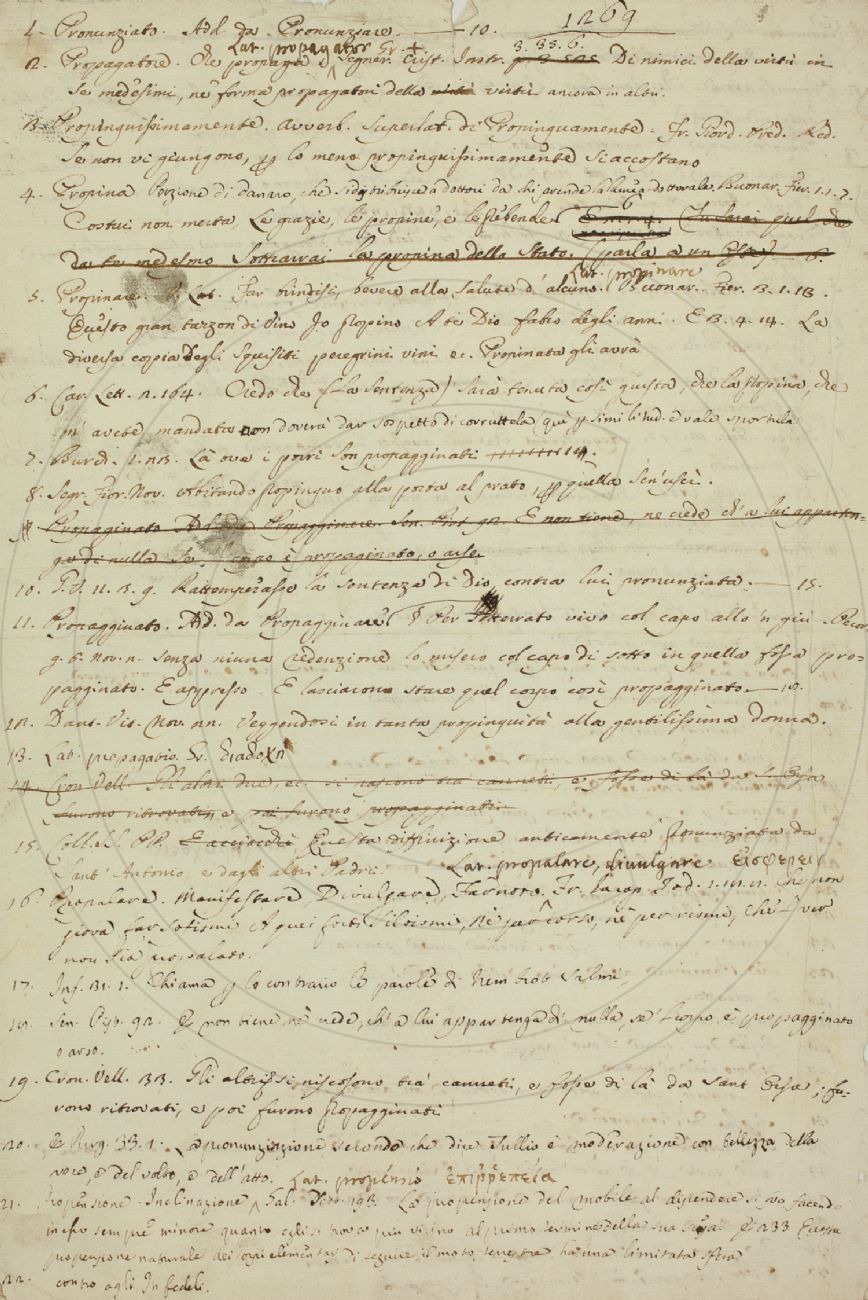 1269
1. Pronunziato. Add. da Pronunziare. —— 10.
Lat. propagator Gr. +
2. Propagatore. Che propaga. Segner. Crist. Instr. 3. 35. 6. Di nimici della virtù in
se medesimi, ne forma propagatori della virtù ancora in altri.
3. Propinquissimamente. Avverb. Superlat. di Propinquamente. Fr. Giord. Pred. Red.
Se non vi giungono, per lo meno propinquissimamente si accostano
4. Propina Porzione di danaro, che si distribuisce a dottori da chi prende la laurea dottorale. Buonar. Fier. 1. 1. 7.
Costui non merta Le grazie, le propine, e le prebende. 6
da te medesmo sottrarrai la propina dello Stato. (parla a un
Lat. propinare
5. Propinare. Lat. Far brindisi, bevere alla salute d'alcuno. Buonar. Fier. 3. 1. 13.
Questo gran tarzon di vino Io propino A te Dio Fabro degli anni. E 3. 4. 14. La
diversa copia Degli squisiti peregrini vini ec. Propinata gli avrà
6. Car. Lett. n. 164. Credo che (la sentenza) sarà tenuta così giusta, che la propina, che
m' avete mandata non doverà dar sospetto di corruttela qui per similitud. e vale sportula
7. Burch. 1. 113. Là ove i porri son propagginati 14.
8. Segr. Fior. Nov. Abitando propinquo alla porta al prato, per quella sen' uscì.
9. Propagginato Ad. da Propagginare. Sen. Pist. 92. E non tiene, ne crede ch' a lui apparten-
ga di nulla se 'l corpo è propaginato, o arso.
10. G. V. 11. 3. 9. Rattemperasse la sentenza di Dio, contra lui pronunziata. —— 15.
11. Propagginato. Ad. da Propagginare Per Sotterrato vivo col capo allo 'n giù. Pecor.
g. 6. nov. 2. Senza niuna redenzione lo misero col capo di sotto in quella fossa pro-
pagginato. E appresso. E lasciarono stare quel corpo così propagginato.——
12. Dant. Vit. Nov. 22. Veggendosi in tanta propinquità alla gentilissima donna.
13. Lat. propagatio. Gr. διαδοχή
14. Cron. Vell. Gli altri due, ec. si nascono tra canneti, e fosse di là da S.
furono ritrovati, e poi furono propagginati.
15. Coll. SS. PP. Questa diffinizione anticamente pronunziata da
Sant' Antonio, e dagli altri Padri.
Lat. propalare, divulgare. εἰσφέρειν
16. Propalare. Manifestare, Divulgare, Far noto. Fr. Iacop. Tod. Che non
giova far sofismi A quei forti silogismi, Nè per corso, nè per rismi, Che 'l ver
non sia propalato.
17. Inf. 31. 1. Chiama per lo contrario le parole di Nembrot salmi
18. Sen. Pist. 92. E non tiene, nè crede, ch' a lui appartenga di nulla, se 'l corpo è propagginato
o arso.
19. Cron. Vell. 33. Gli altri si nascosono tra' canneti, e fosse di là da Sant' ; fu-
rono ritrovati, e poi furono propagginati
20. E Purg. 33. 1. La pronunziazione secondo che dice Tullio è moderazione con bellezza della
voce, e del volto, e dell' atto. Lat. propensio ἐπιρρέπεια
21. Propensione. Inclinazione. Gal. La propensione del mobile al discendere si va facendo
in esso sempre minore quanto egli si trova più vicino al primo termine della sua 233 Essa
propensione naturale dei corpi elementari di seguire il moto terrestre ha una limitata sfera
22. contro agli Infedeli.